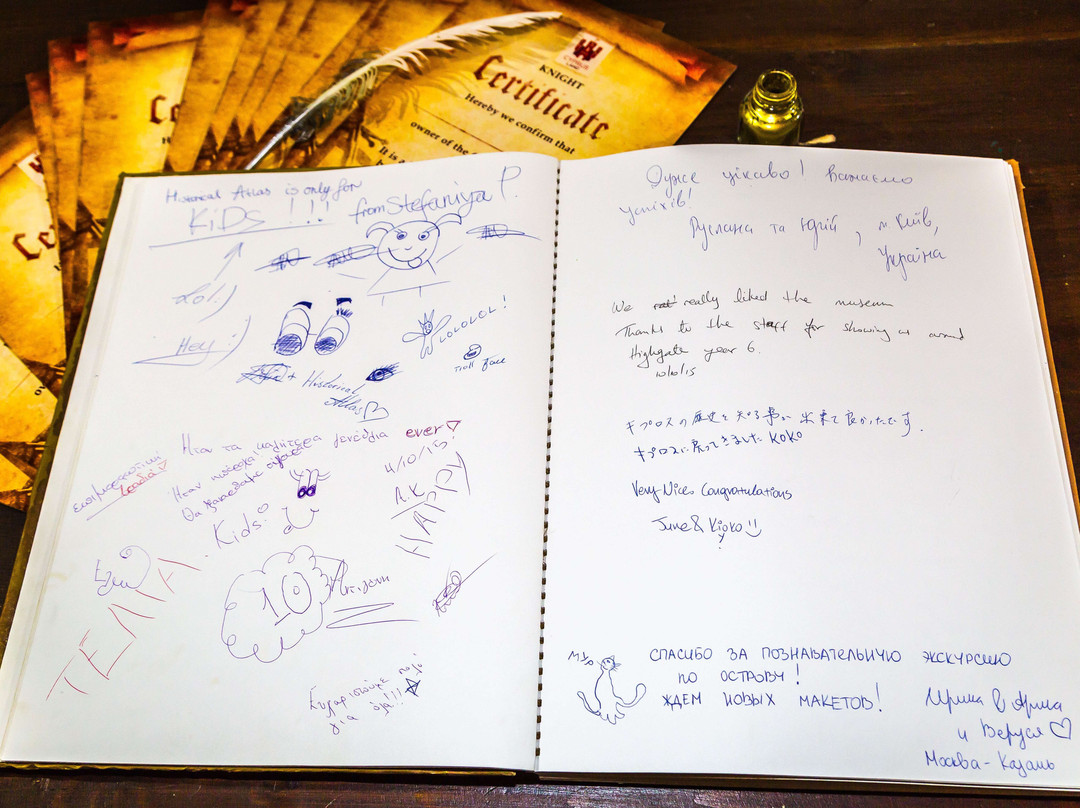 KNIGHT
Certificate
Hereby we confirm that
owner of the
It is a
Historical Atlas is only for
KiDS !!! from Stefaniya P.
Lol:)
Hey :)
LOLOLOL!
Troll face
+ Historical
Atlas
Ήταν τα καλύτερα γενέθλια ever
Ήταν
4/10/15
A.K
HAPPY
Kids:
10
ΤΕΛΕΙΑ
Ευχαριστούμε πολύ
για όλα!!!
Дуже цікаво! Бажаємо
успіхів!
Руслана та Юрій, м Київ,
Україна
We really liked the museum
Thanks to the staff for showing us around
Highgate year 6.
10/6/15
キプロスの歴史を知る事が出来て良かったです.
キプロスに戻ってきました KOKO
Very Nice Congratulations
June & Kioko
y
МЯУ
СПАСИБО ЗА ПОЗНАВАТЕЛЬНУЮ ЭКСКУРСИЮ
ПО ОСТРОВУ!
ЖДЕМ НОВЫХ МАКЕТОВ!
Ирина & Арина
и Веруся
Москва-Казань